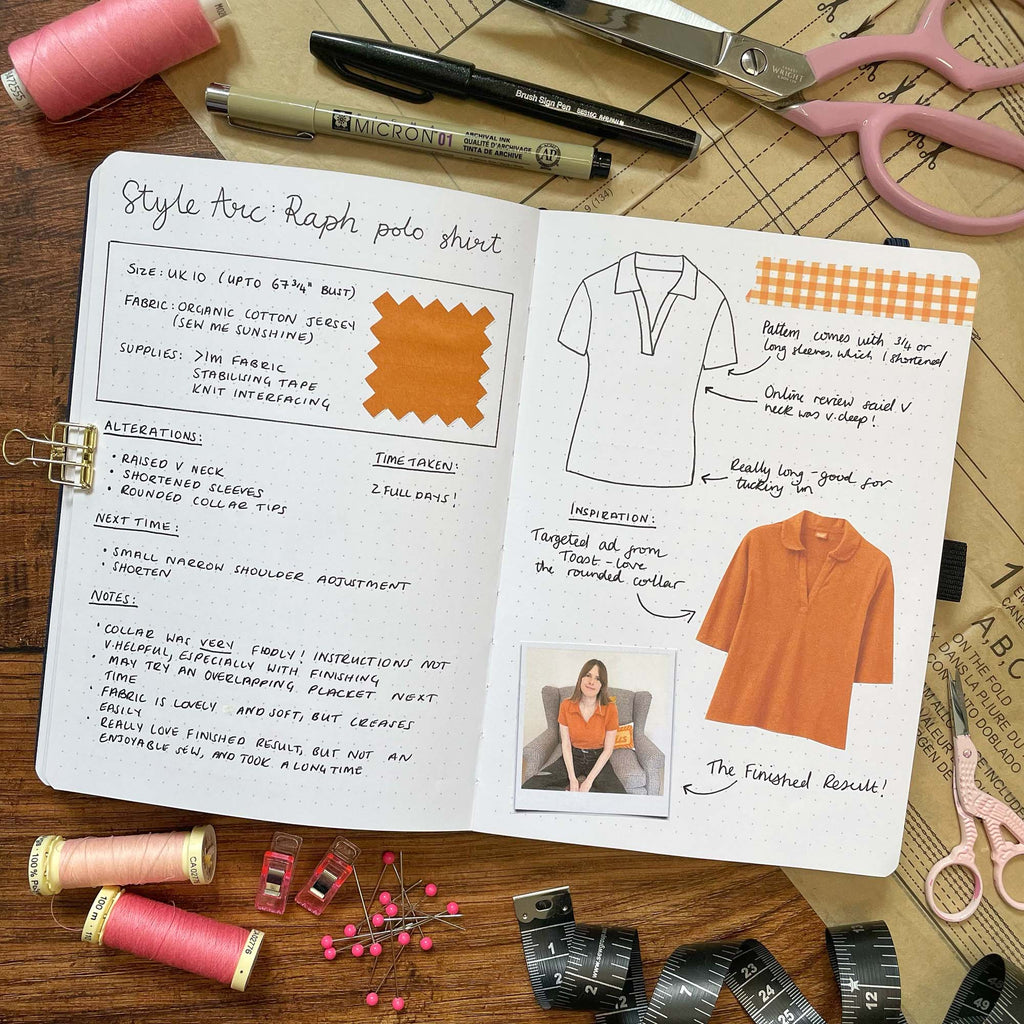 Style Arc: Raph polo shirt
SIZE: UK 10 (UPTO 67 3/4" BUST)
FABRIC: ORGANIC COTTON JERSEY
(SEW ME SUNSHINE)
SUPPLIES: >1M FABRIC
STABILISING TAPE
KNIT INTERFACING
ALTERATIONS:
• RAISED V NECK
• SHORTENED SLEEVES
• ROUNDED COLLAR TIPS
TIME TAKEN:
2 FULL DAYS!
NEXT TIME:
• SMALL NARROW SHOULDER ADJUSTMENT
• SHORTEN
NOTES:
• COLLAR WAS VERY FIDDLY! INSTRUCTIONS NOT
V.HELPFUL, ESPECIALLY WITH FINISHING
• MAY TRY AN OVERLAPPING PLACKET NEXT
TIME
• FABRIC IS LOVELY AND SOFT, BUT CREASES
EASILY
• REALLY LOVE FINISHED RESULT, BUT NOT AN
ENJOYABLE SEW, AND TOOK A LONG TIME
Pattern comes with 3/4 or
long sleeves, which I shortened
Online review said V
neck was v.deep!
Really long - good for
tucking in
INSPIRATION:
Targeted ad from
Toast - love
the rounded collar
The Finished Result!
Brush Sign Pen
MICRON 01
ARCHIVAL INK
QUALITÉ D'ARCHIVAGE
TINTA DE ARCHIVE
AP
WRIGHT
9 (134)
1
A,B,C
ON THE FOLD
DANS LA PLIURE
100 m
100%
1
2
2
7
23
24
25
12
49